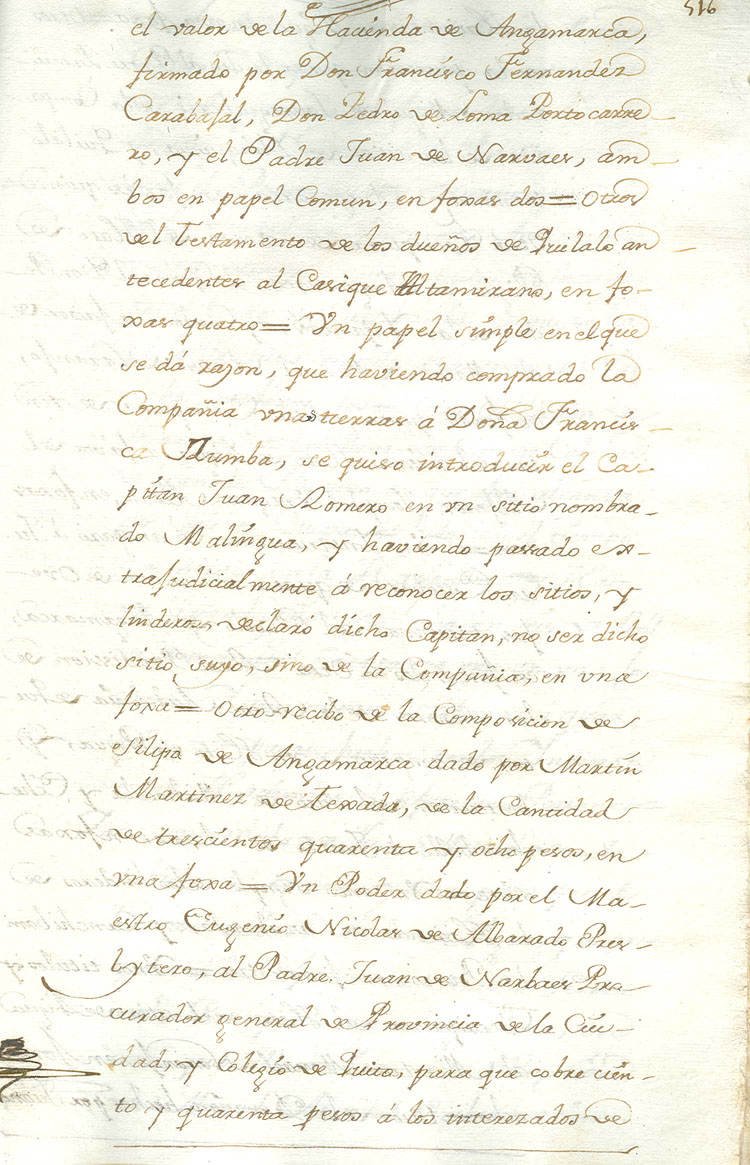 516
el valor de la Hacienda de Angamarca,
firmado por Don Francisco Fernandez
Carabajal, Don Pedro de Loma Portocarre-
ro, y el Padre Juan de Narvaes, am-
bos en papel Comun, en foxas dos = Otros
del Testamento de los dueños de Quilalo an-
tecedentes al Casique Altamirano, en fo-
xas quatro = Vn papel simple en el que
se dá razon, que haviendo comprado la
Compañia vnas tierras á Doña Francis-
ca Zumba, se quiso introducir el Ca-
pitan Juan Romero en vn sitio nombra-
do Malingua, y haviendo passado ex-
trajudicialmente á reconocer los sitios, y
linderos, declaró dicho Capitan, no ser dicho
sitio suyo, sino de la Compañia, en vna
foxa = Otro recibo de la Composicion de
Silipa de Angamarca dado por Martin
Martinez de Texada, de la Cantidad
de trescientos quarenta y ocho pesos, en
vna foxa = Vn Poder dado por el Ma-
estro Eugenio Nicolas de Albarado Pres-
bytero, al Padre Juan de Narbaes Pro-
curador general de Provincia de la Ciu-
dad, y Colegio de Quito, para que cobre cien-
to y quarenta pesos á los interezados de